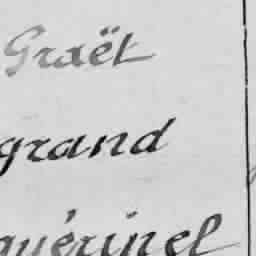 Graët
grand
guérinel